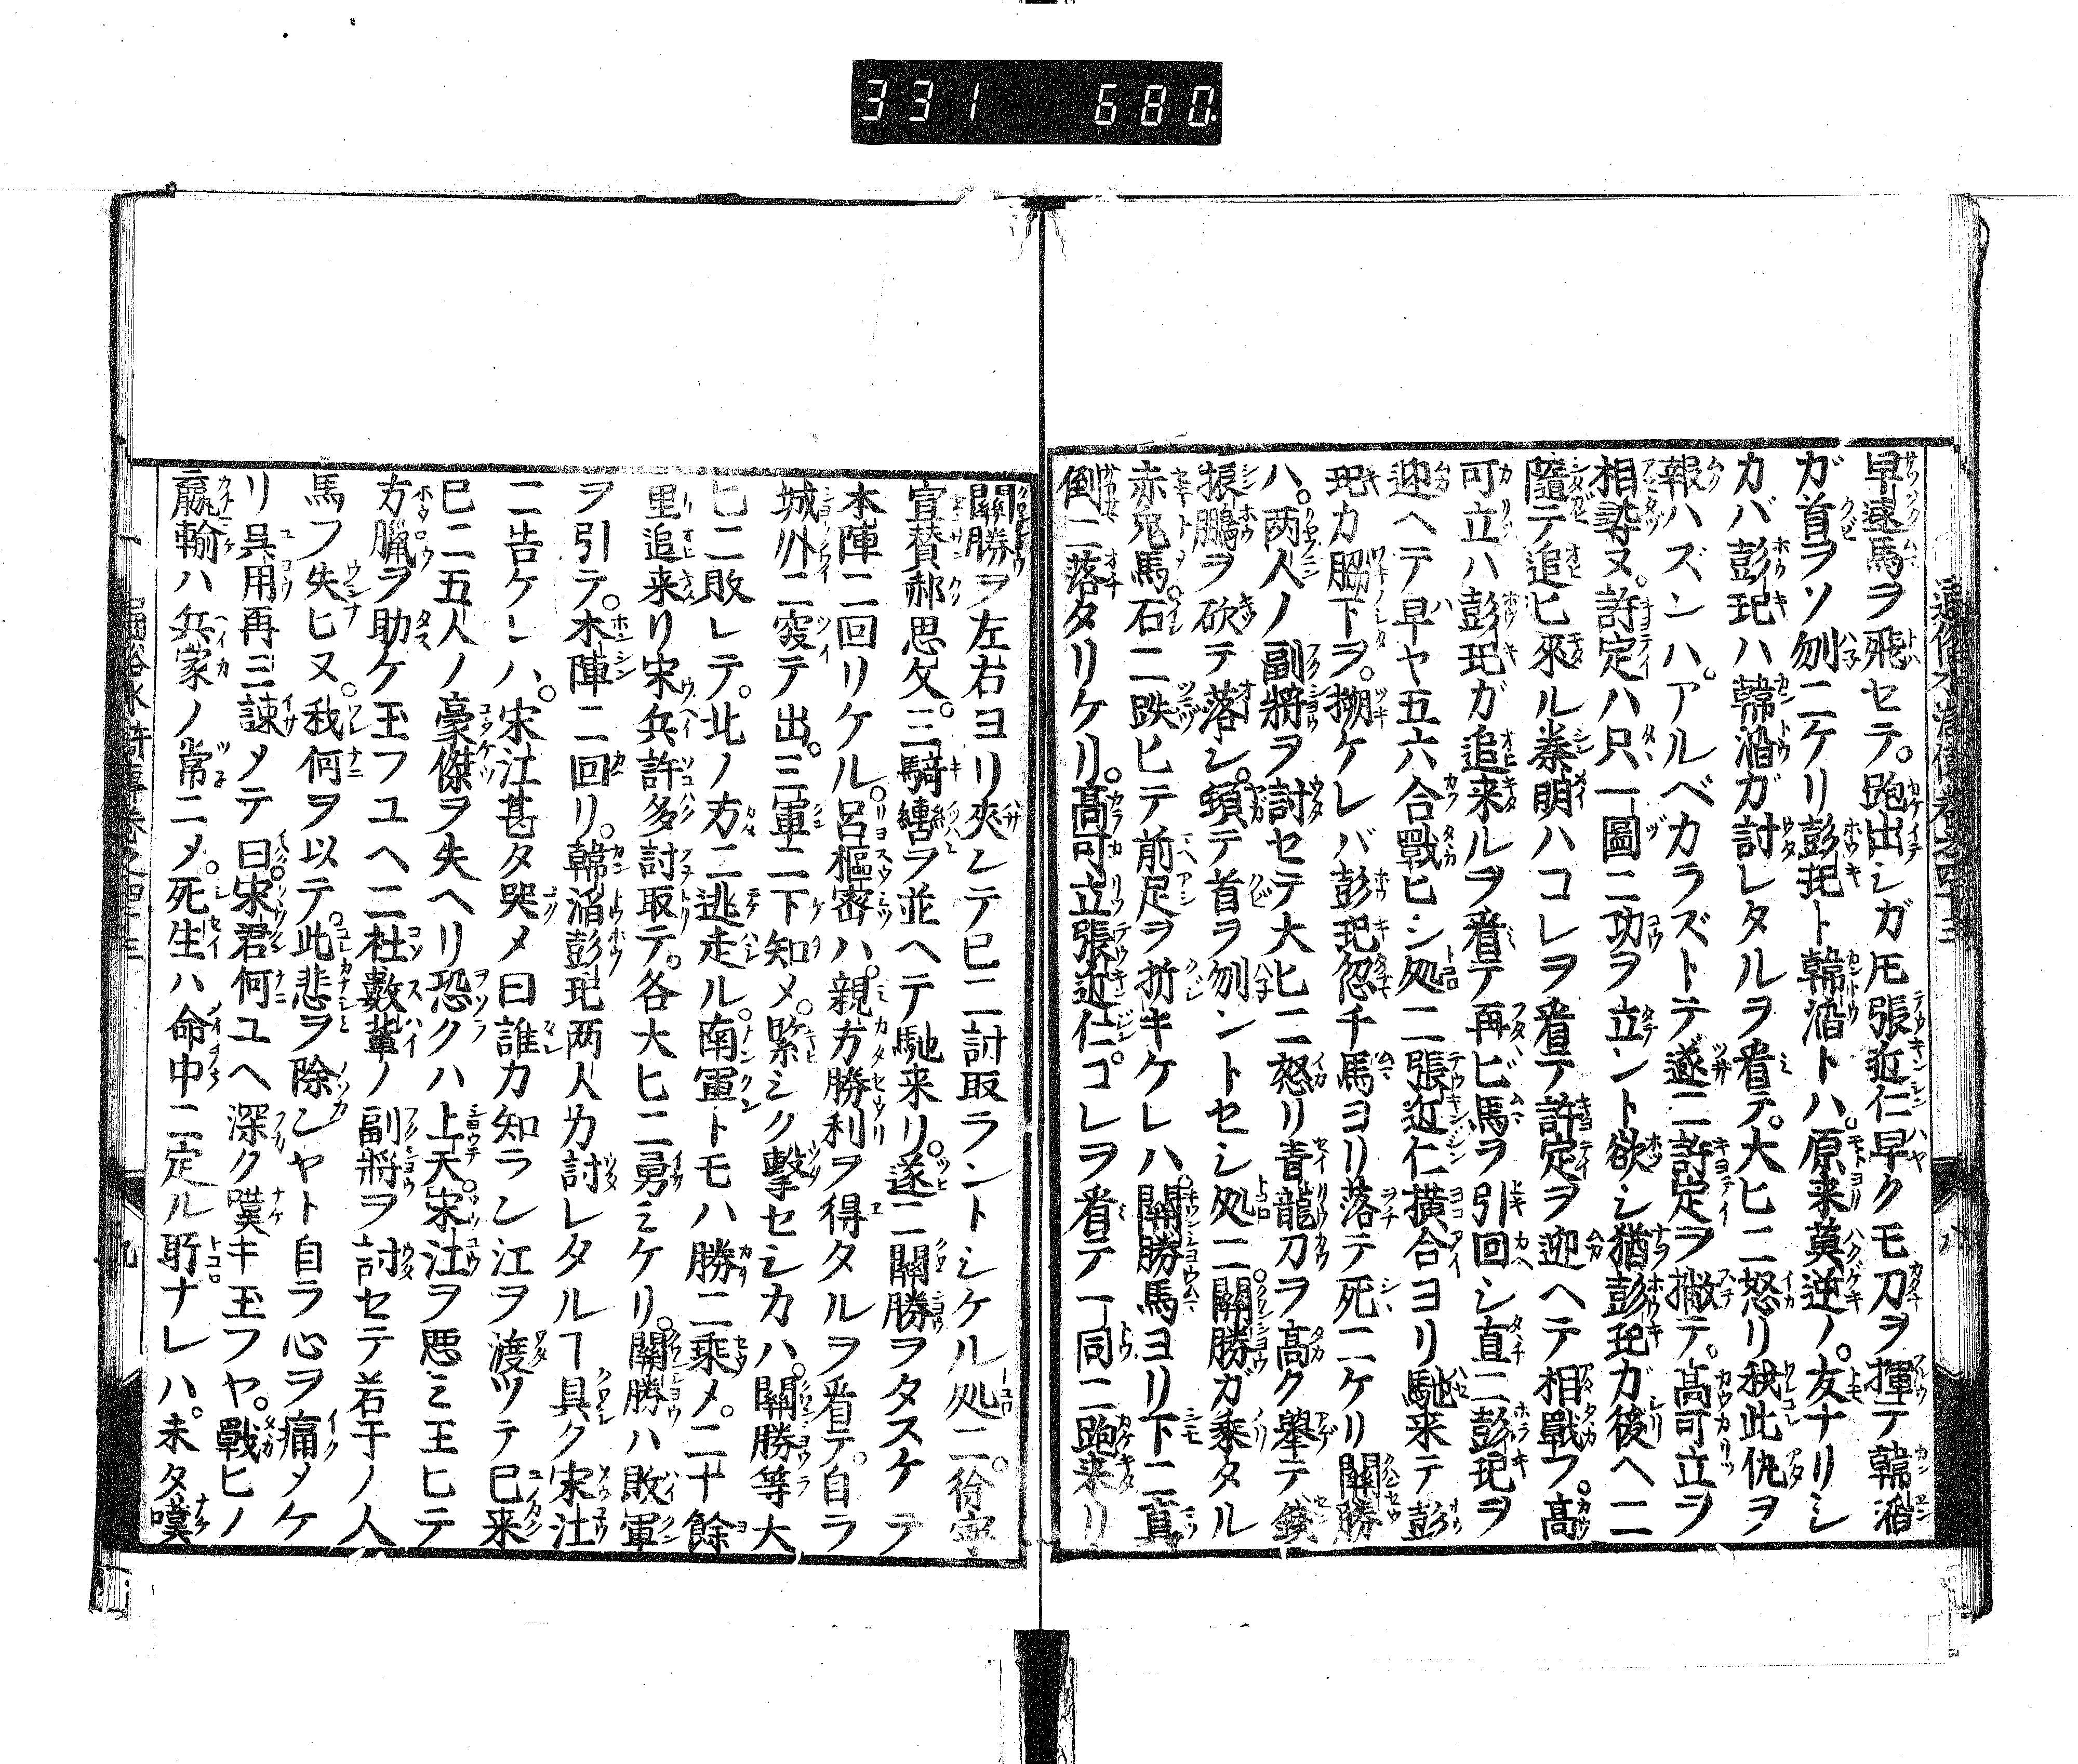 331 680
早速馬ヲ飛セテ。跑出シガ𪜈張近仁早クモ刀ヲ揮テ韓滔
ガ首ヲソ刎ニケリ彭玘ト韓滔トハ。原来莫逆ノ。友ナリシ
カバ彭玘ハ韓滔ガ討レタルヲ看テ。大ヒニ怒リ我此仇ヲ
報ハズンハ。アルベカラズトテ遂ニ許定ヲ撇テ。高可立ヲ
相尋ヌ。許定ハ只一圖ニ功ヲ立ント欲シ猶彭玘ガ後ヘニ
隨テ追ヒ來ル秦明ハコレヲ看テ許定ヲ迎ヘテ相戰フ。高
可立ハ彭玘ガ追来ルヲ看テ再ビ馬ヲ引回シ直ニ彭玘ヲ
迎ヘテ早ヤ五六合戰ヒシ処ニ張近仁横合ヨリ馳来テ彭
玘カ脇下ヲ。搠ケレバ彭玘忽チ馬ヨリ落テ死ニケリ關勝
ハ。両人ノ副將ヲ討セテ大ヒニ怒リ青龍刀ヲ高ク舉テ錢
振鵬ヲ砍テ落シ。頓テ首ヲ刎ントセシ処ニ。關勝ガ乗タル
赤兎馬。石ニ跌ヒテ前足ヲ折キケレハ。關勝馬ヨリ下ニ真
倒ニ落タリケリ。高可立張近仁。コレヲ看テ一同ニ跑来リ
關勝ヲ左右ヨリ夾シテ已ニ討取ラントシケル処ニ。徐寧
宣賛郝思文。三騎轡ヲ並ヘテ馳来リ。遂ニ關勝ヲタスケテ
本陣ニ回リケル。呂樞密ハ。親方勝利ヲ得タルヲ看テ。自ラ
城外ニ突テ出。三軍ニ下知メ。緊シク擊セシカハ。關勝等大
ヒニ敗レテ。北ノ方ニ逃走ル。南軍トモハ勝ニ乗メ。二十餘
里追来リ宋兵許多討取テ。各大ヒニ勇ミケリ。關勝ハ敗軍
ヲ引テ。本陣ニ回リ。韓滔彭玘両人カ討レタルヿ具ク宋江
ニ告ケレハ。宋江甚タ哭メ曰誰カ知ラン江ヲ渡ツテ已来
已ニ五人ノ豪傑ヲ失ヘリ恐クハ上天。宋江ヲ悪ミ王ヒテ
方臘ヲ助ケ玉フユヘニ社數輩ノ副將ヲ討セテ若干ノ人
馬フ失ヒヌ。我何ヲ以テ。此悲ヲ除ンヤト自ラ心ヲ痛メケ
リ呉用再三諫メテ曰。宋君何ユヘ深ク嘆キ玉フヤ。戰ヒノ
贏輸ハ兵家ノ常ニメ。死生ハ命中ニ定ル所ナレハ。未タ嘆